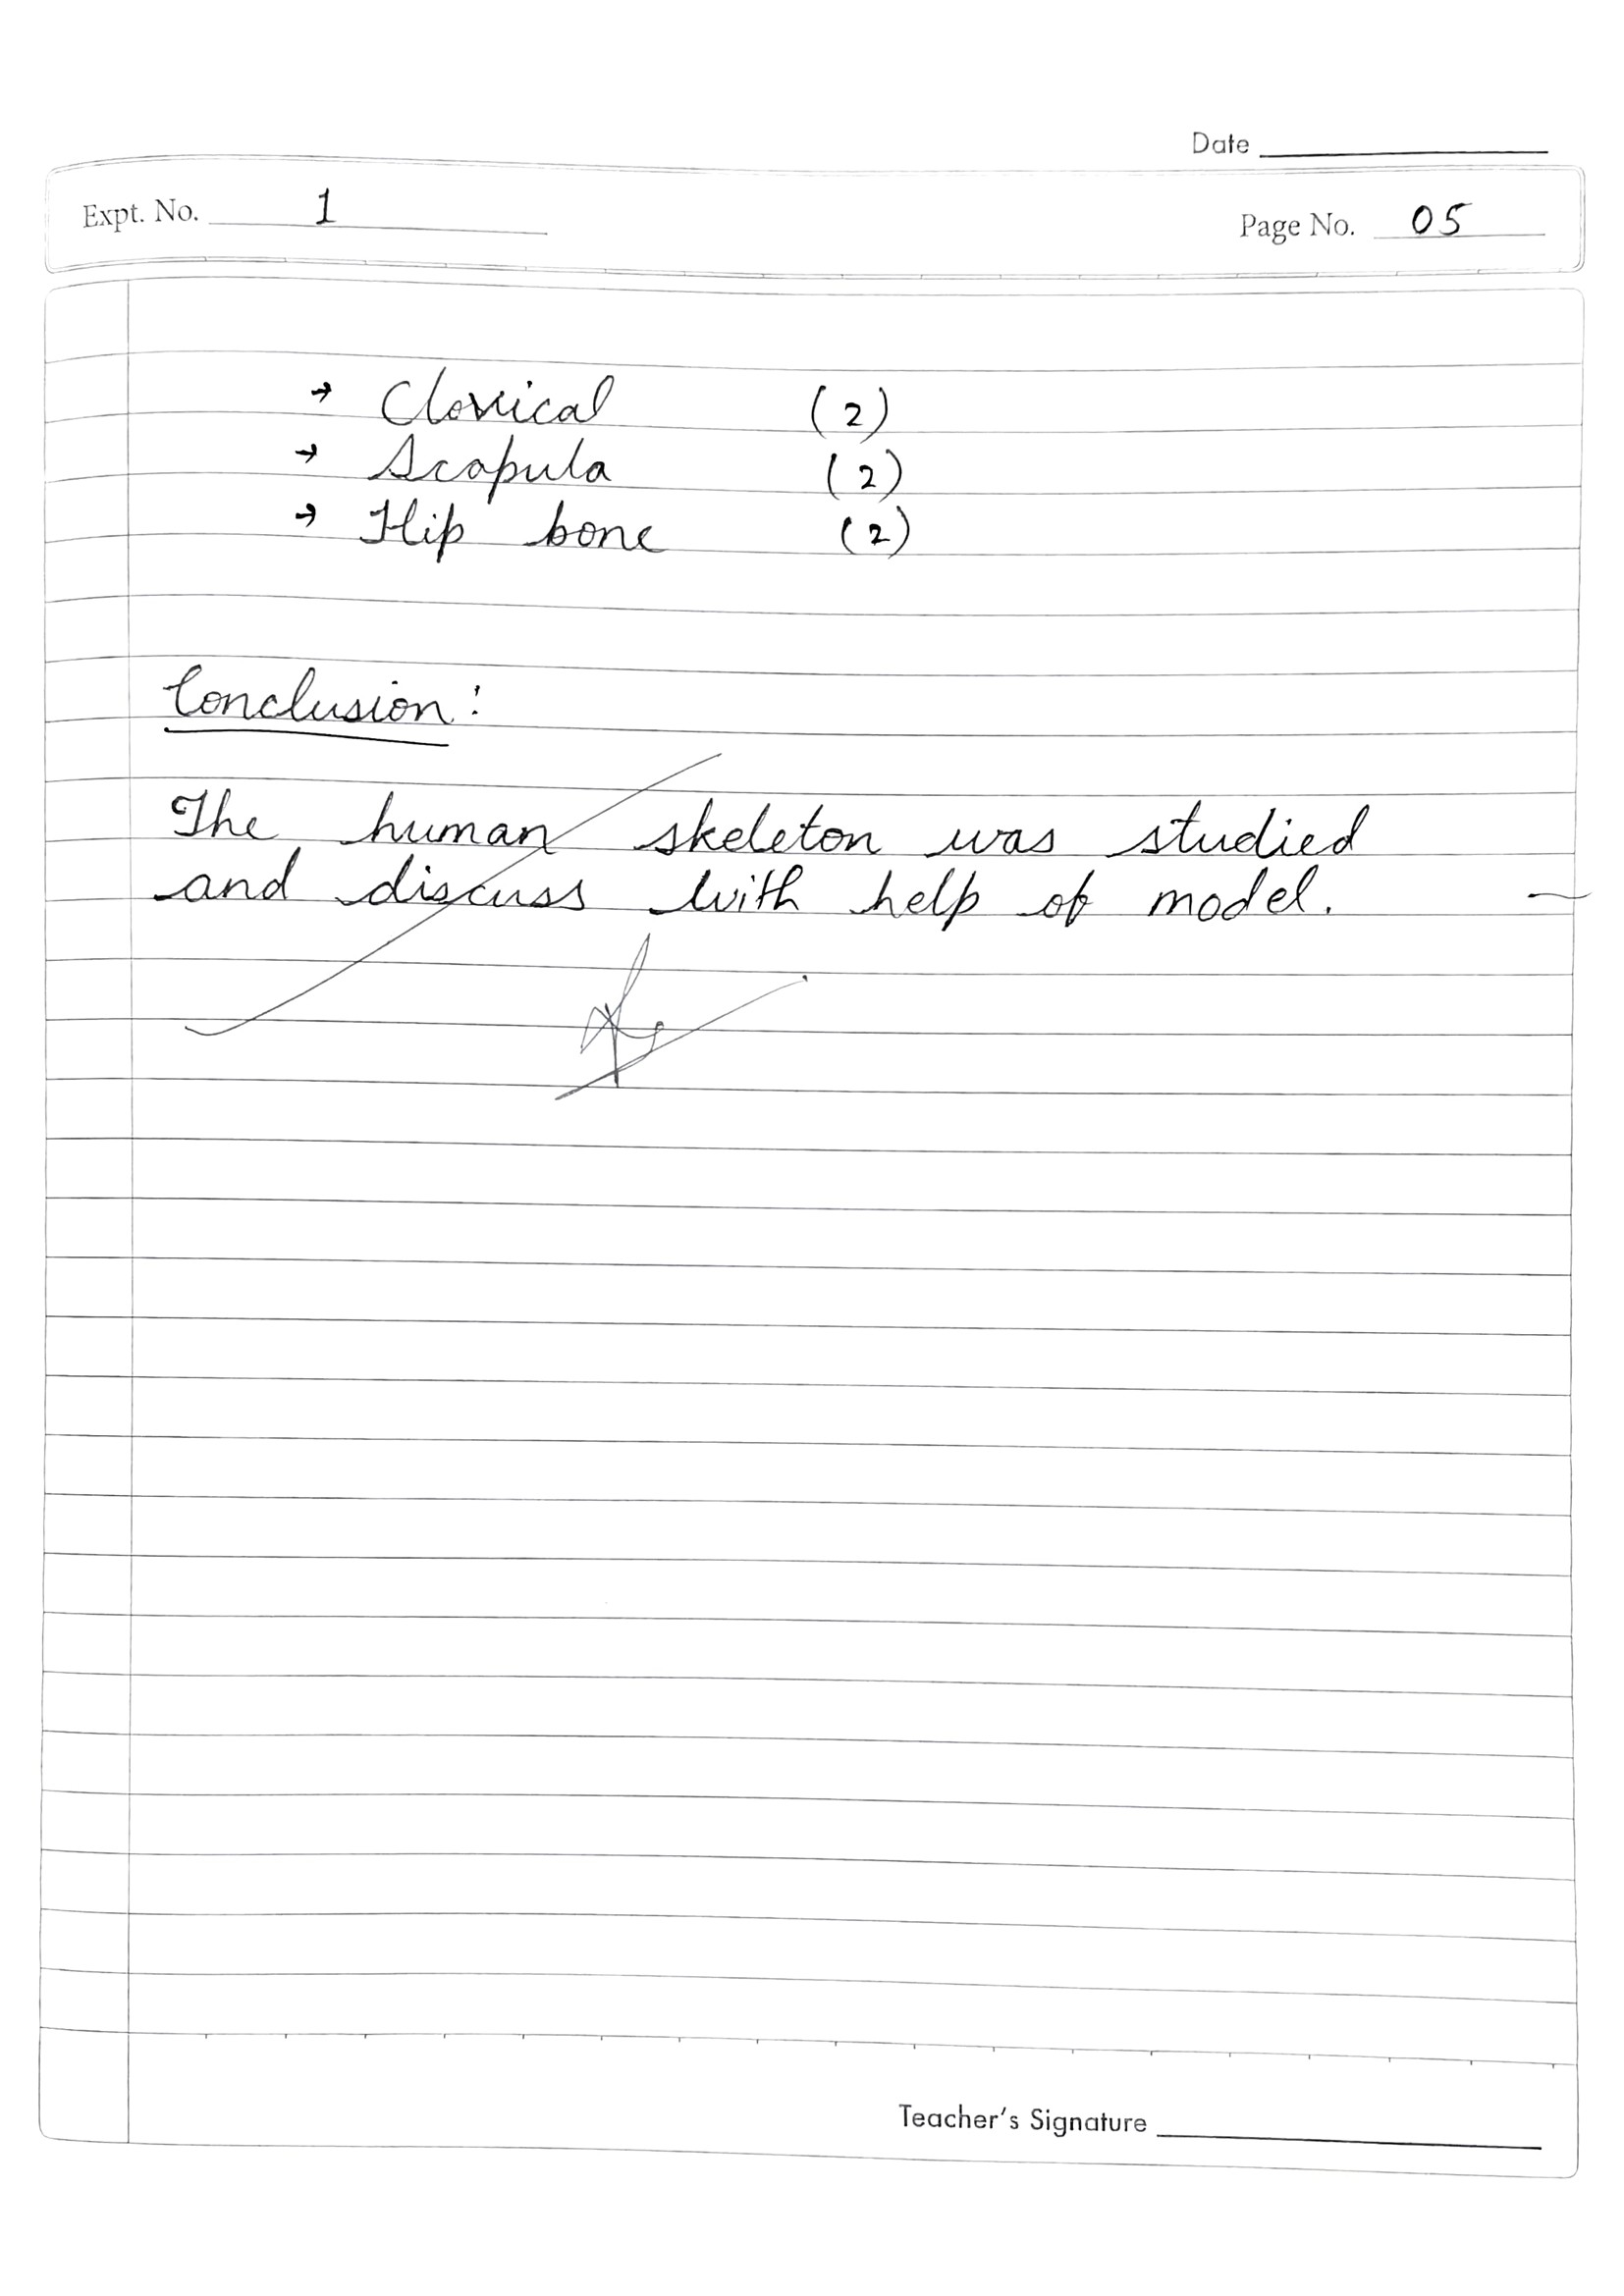 Date
Expt. No. 1
Page No. 05
→ Clavical (2)
→ Scapula (2)
→ Hip bone (2)
Conclusion:
The human skeleton was studied
and discuss with help of model.
Teacher's Signature